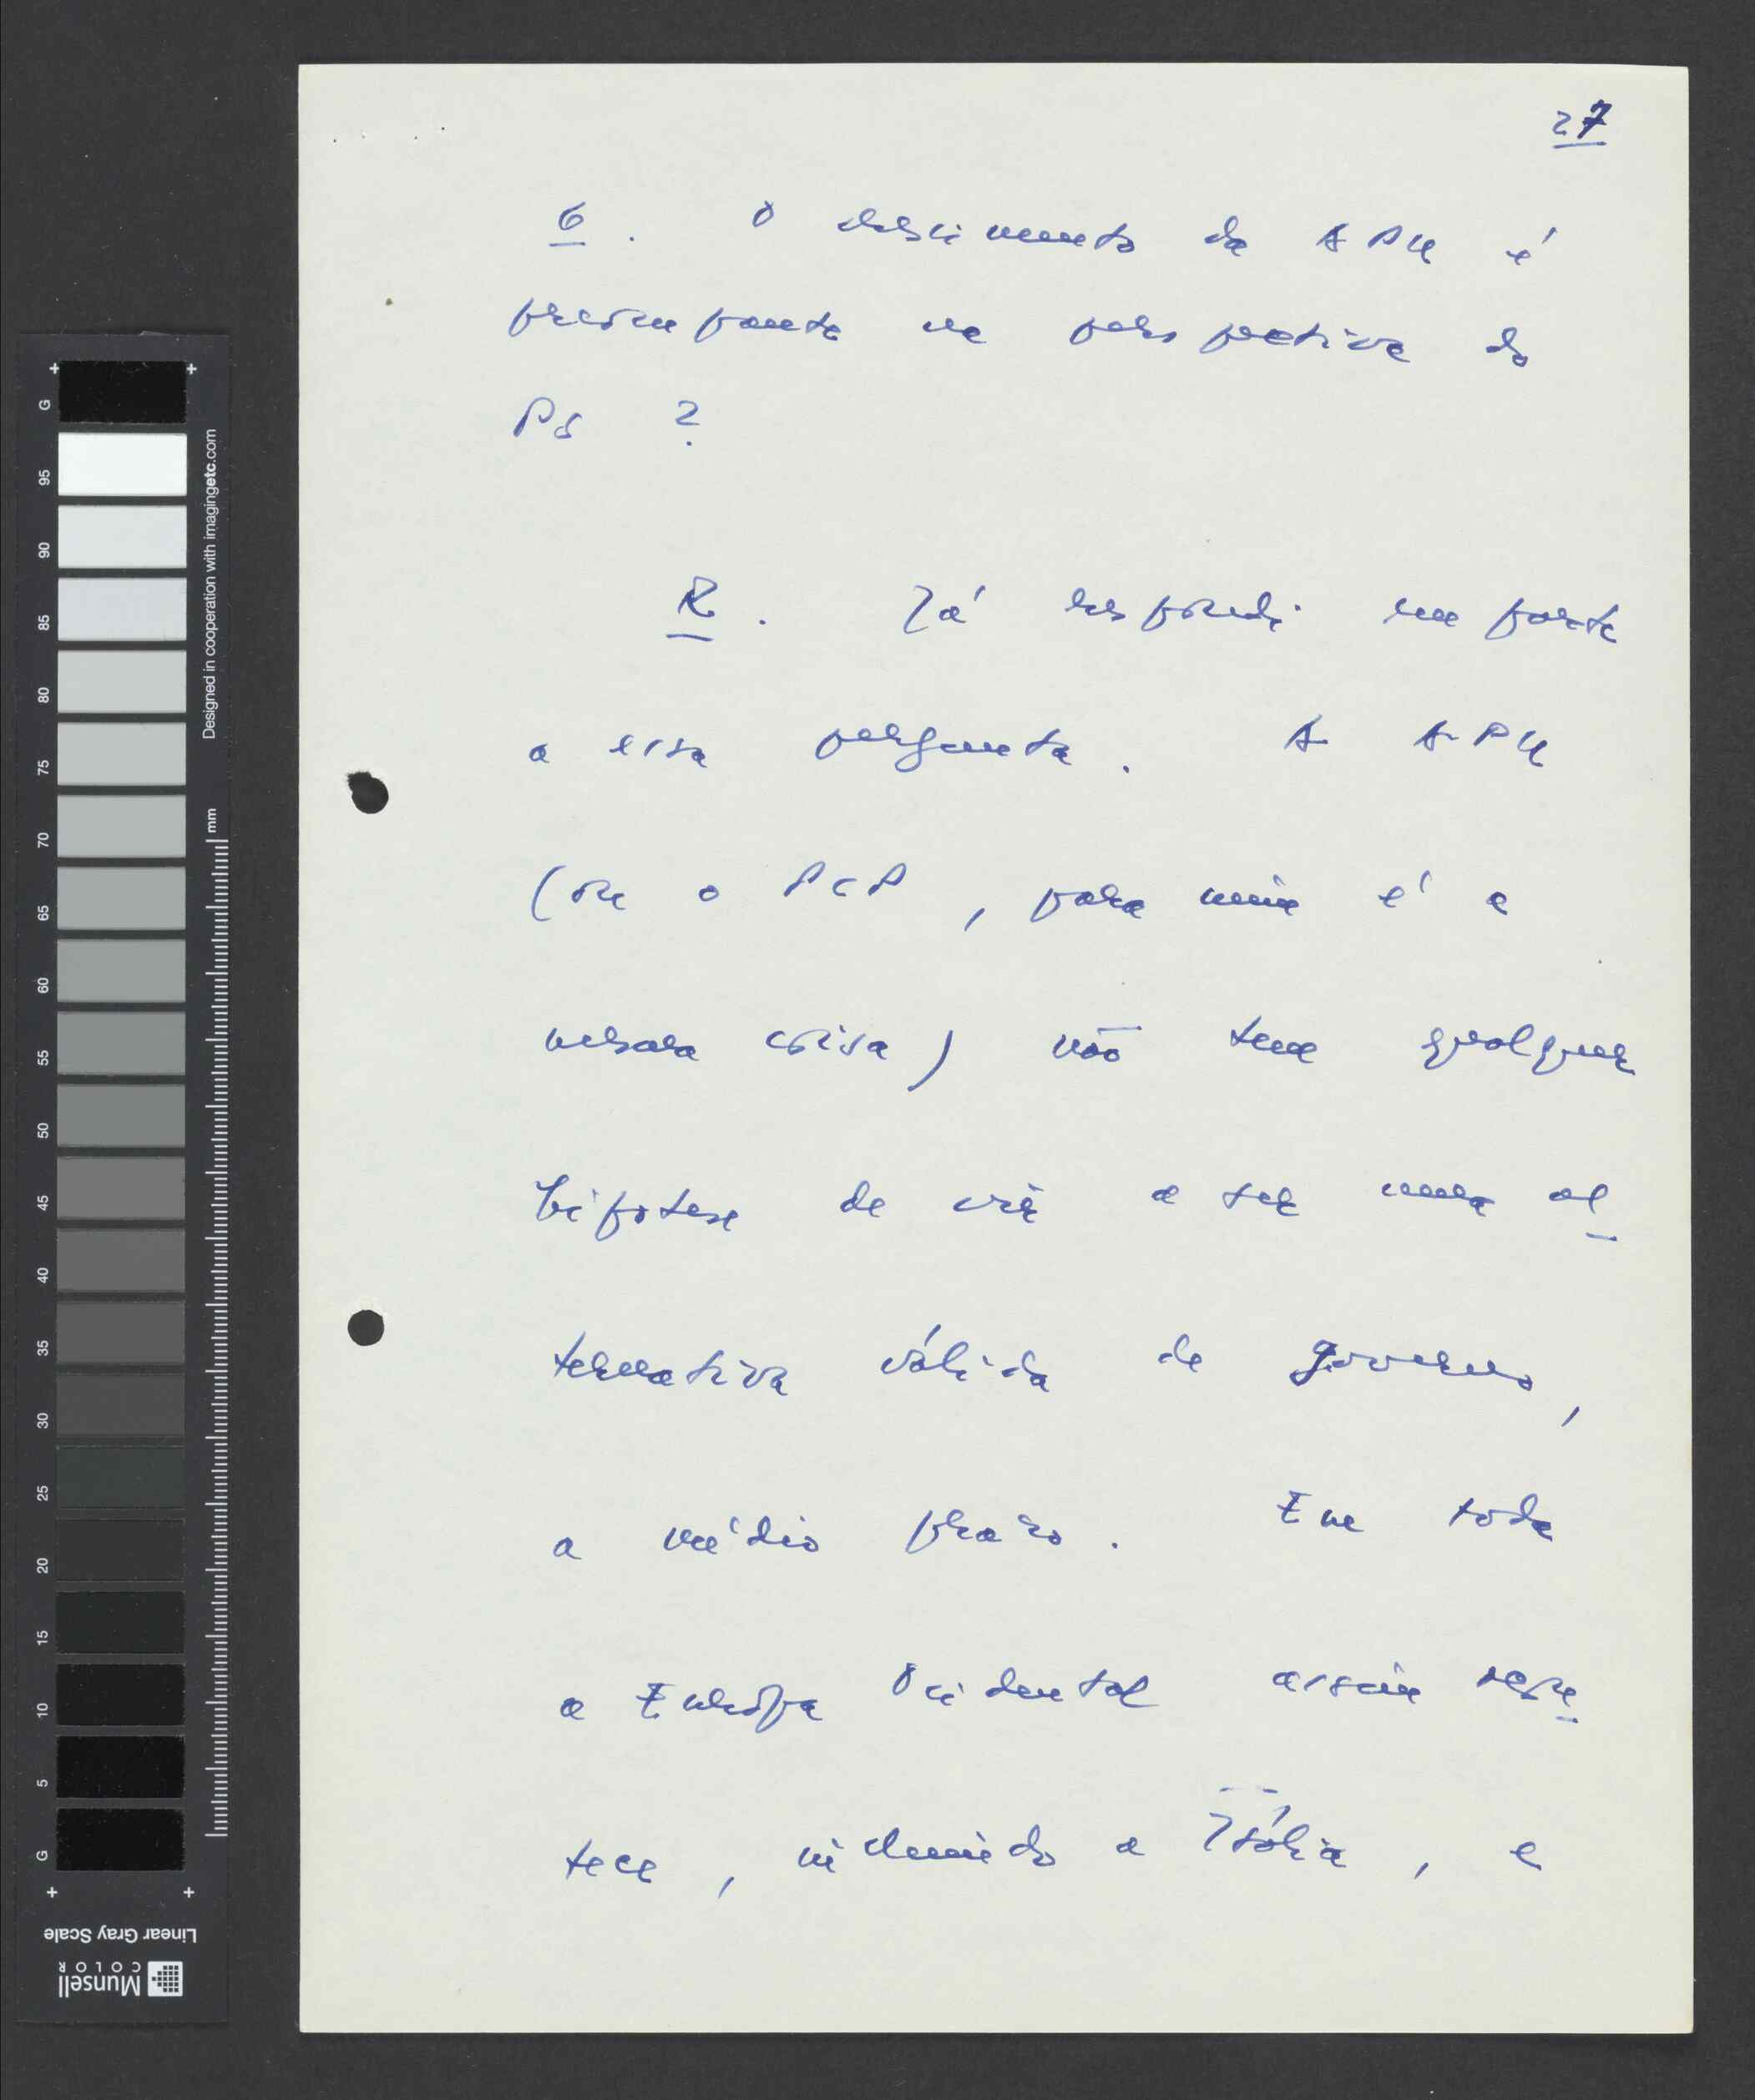 27
6. O crescimento da APU é
preocupante na perspectiva do
PS ?
R. Já respondi em parte
a essa pergunta. A APU
(ou o PCP, para mim é a
mesma coisa) não tem qualquer
hipótese de vir a ser uma al
ternativa válida de governo,
a médio prazo. Em toda
a Europa Ocidental assim
, incluindo a Itália, e
G
95
90
85
80
75
70
65
60
55
50
45
40
35
30
25
20
15
10
5
G
Designed in cooperation with imagingetc.com
mm
Linear Gray Scale
Munsell
COLOR